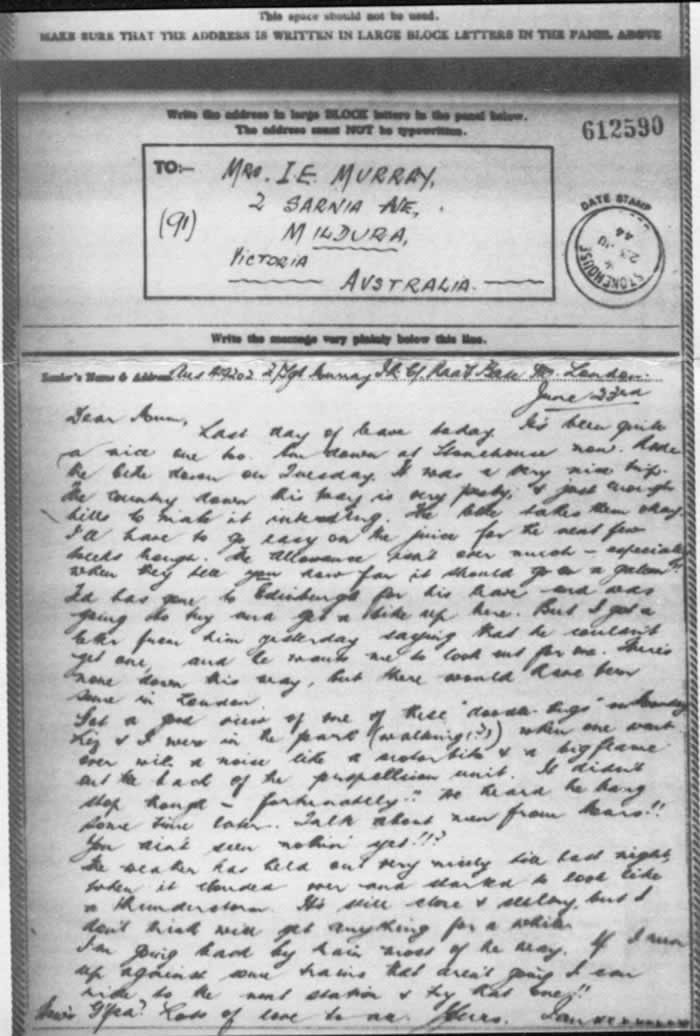 This space should not be used.
MAKE SURE THAT THE ADDRESS IS WRITTEN IN LARGE BLOCK LETTERS IN THE PANEL ABOVE
Write the address in large BLOCK letters in the panel below.
The address must NOT be typewritten.
612590
TO:—
MRS. I.E. MURRAY,
2 SARNIA AVE,
(91)
MILDURA,
VICTORIA
AUSTRALIA.
DATE STAMP
STONEHOUSE
23 JU
44
Write the message very plainly below this line.
Sender's Name & Address Aus 419202 F/Sgt Murray Base London.
June 23rd
Dear Mum,
Last day of leave today. It's been quite
a nice one too. Am down at Stonehouse now. Rode
the bike down on Tuesday. It was a very nice trip.
The country down this way is very pretty, & just enough
hills to make it interesting. The bike takes them okay
I'll have to go easy on the juice for the next few
weeks though. The allowance isn't over much — especially
when they tell you how far it should go on a gallon!!
Ed has gone to Edinburgh for his leave and was
going to try and get a bike up here. But I got a
letter from him yesterday saying that he couldn't
get one, and he wants me to look out for one. There's
none down this way, but there would have been
some in London.
Got a good view of one of these "doodle-bugs" on Sunday
& I were in the park (walking!?!) when one went
over with a noise like a motorbike & a big flame
out the back of the propellsion unit. It didn't
stop though — fortunately!! We heard the bang
some time later. Talk about men from Mars!!
You ain't seen nothin' yet!!?
The weather has held out very nicely till last night
when it clouded over and started to look like
a thunderstorm. It's still close & sultry, but I
don't think we'll get anything for a while.
I'm going back by train most of the way. If I run
up against some trains that aren't going I can
ride to the next station & try that one!!
How's Lots of love to all Yours,